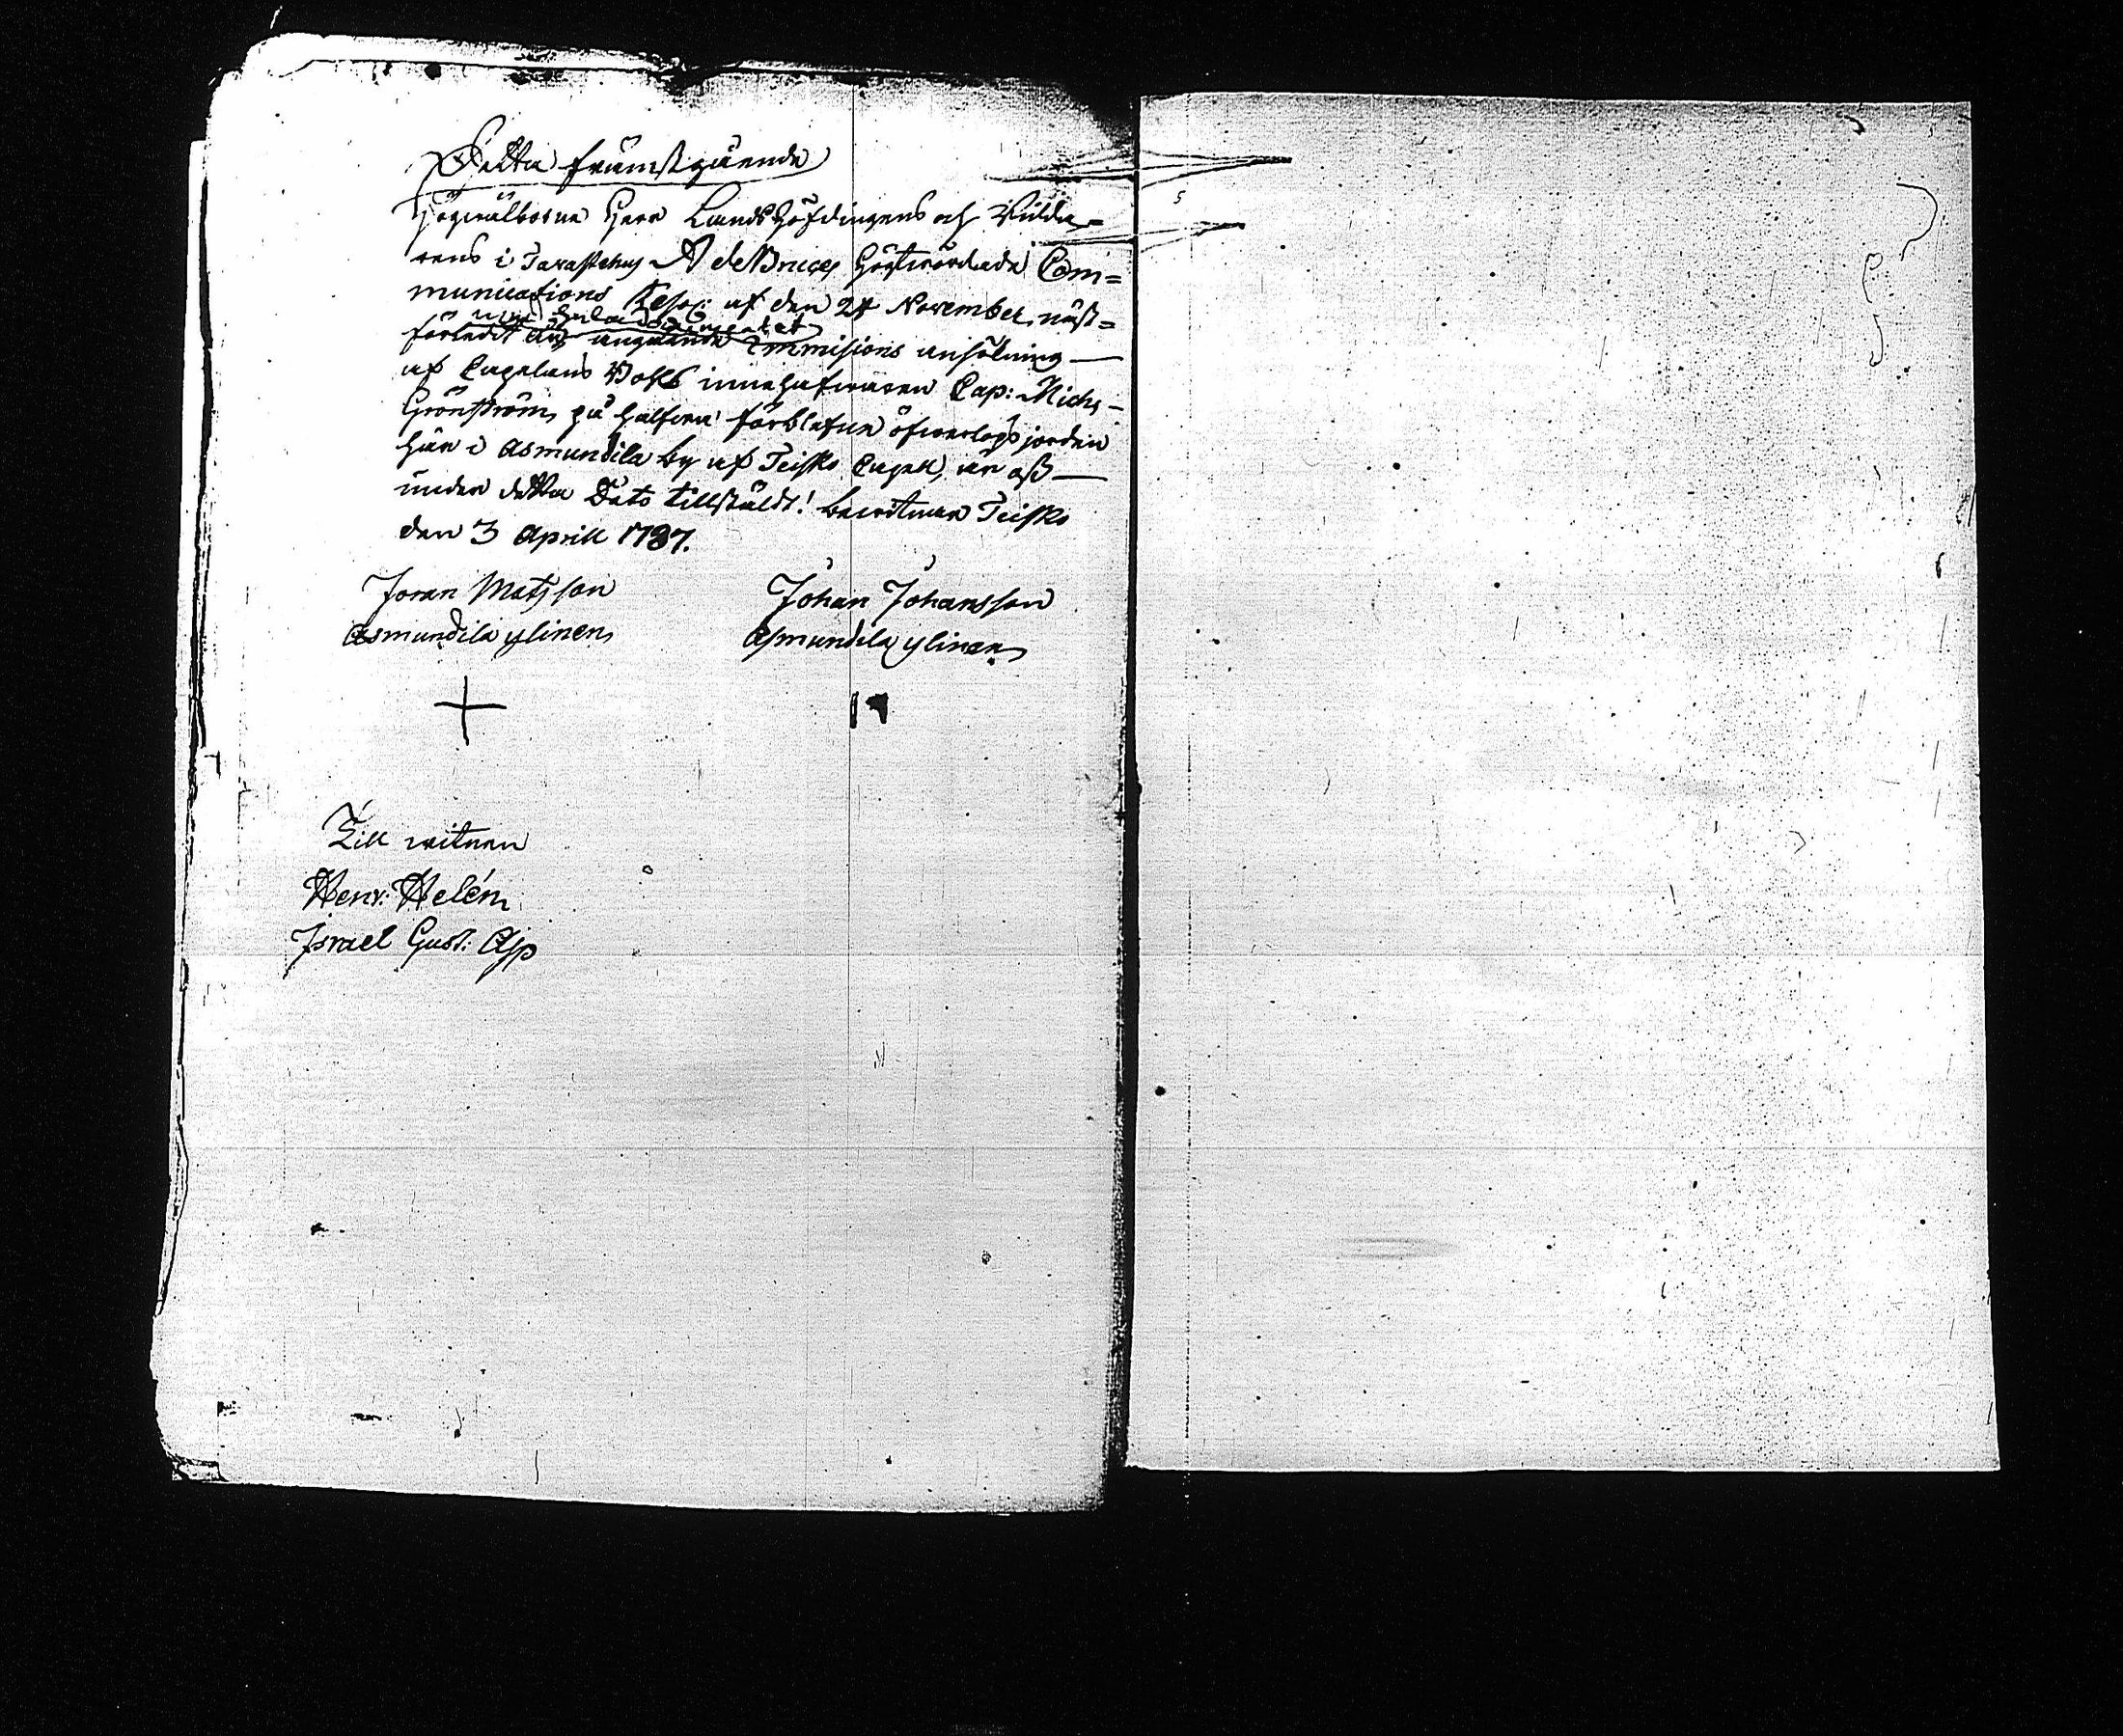 Detta främstgående
Högwälborne Herr LandsHöfdingens och Riddarens
i Tavastehus A de Bruces Högtwördade Com=
munications Resol: af den 24 November näst=
förledit år angående Immissions ansökning
af Capelans Bohls innehafwaren Cap: Mich:
Grönström, på halfwa förblefne öfwerlops jorden
här i Asmundila by af Teisko Capell, är oss
under detta Dato tillstäldt! bewitnar Teisko
den 3 Aprill 1787.
Joran Matsson
Asmundila ylinen
Johan Johansson
Asmundila ylinen
Till witnen
Henr: Helén
Israel Gust: Asp